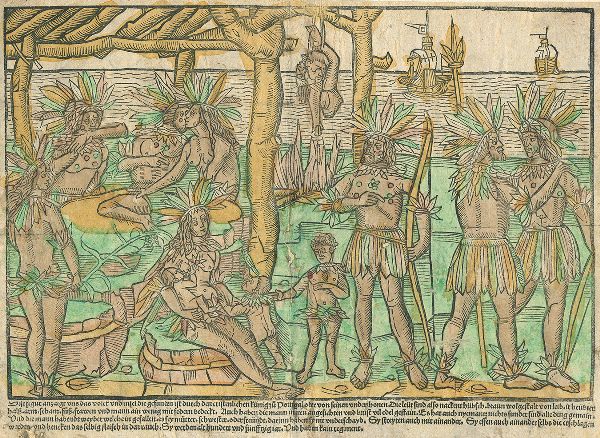 Dise figur anzaigt uns das volck und insel die gefunden ist durch den cristenlichen künig zů Portigal oder von seinen underthonen. Die leüt sind also nackent hübsch. braun wolgestalt von leib. ir heübter.
halß. arm. scham. füß. frawen und mann ain wenig mit federn bedeckt. Auch haben die mann in iren angesichten und brust vil edel gestain. Es hat auch nyemant nichts sunder sind alle ding gemain.
Und die mann habendt weyber welche in gefallen. es sey můtter, schwester oder freünde. darinn haben sy kain underschayd. Sy streyten auch mit ainander. Sy essen auch ainander selbs die erschlagen
werden. und hencken das selbig flaisch in den rauch. Sy werden alt hundert und fünfftzig iar. Und haben kain regiment.